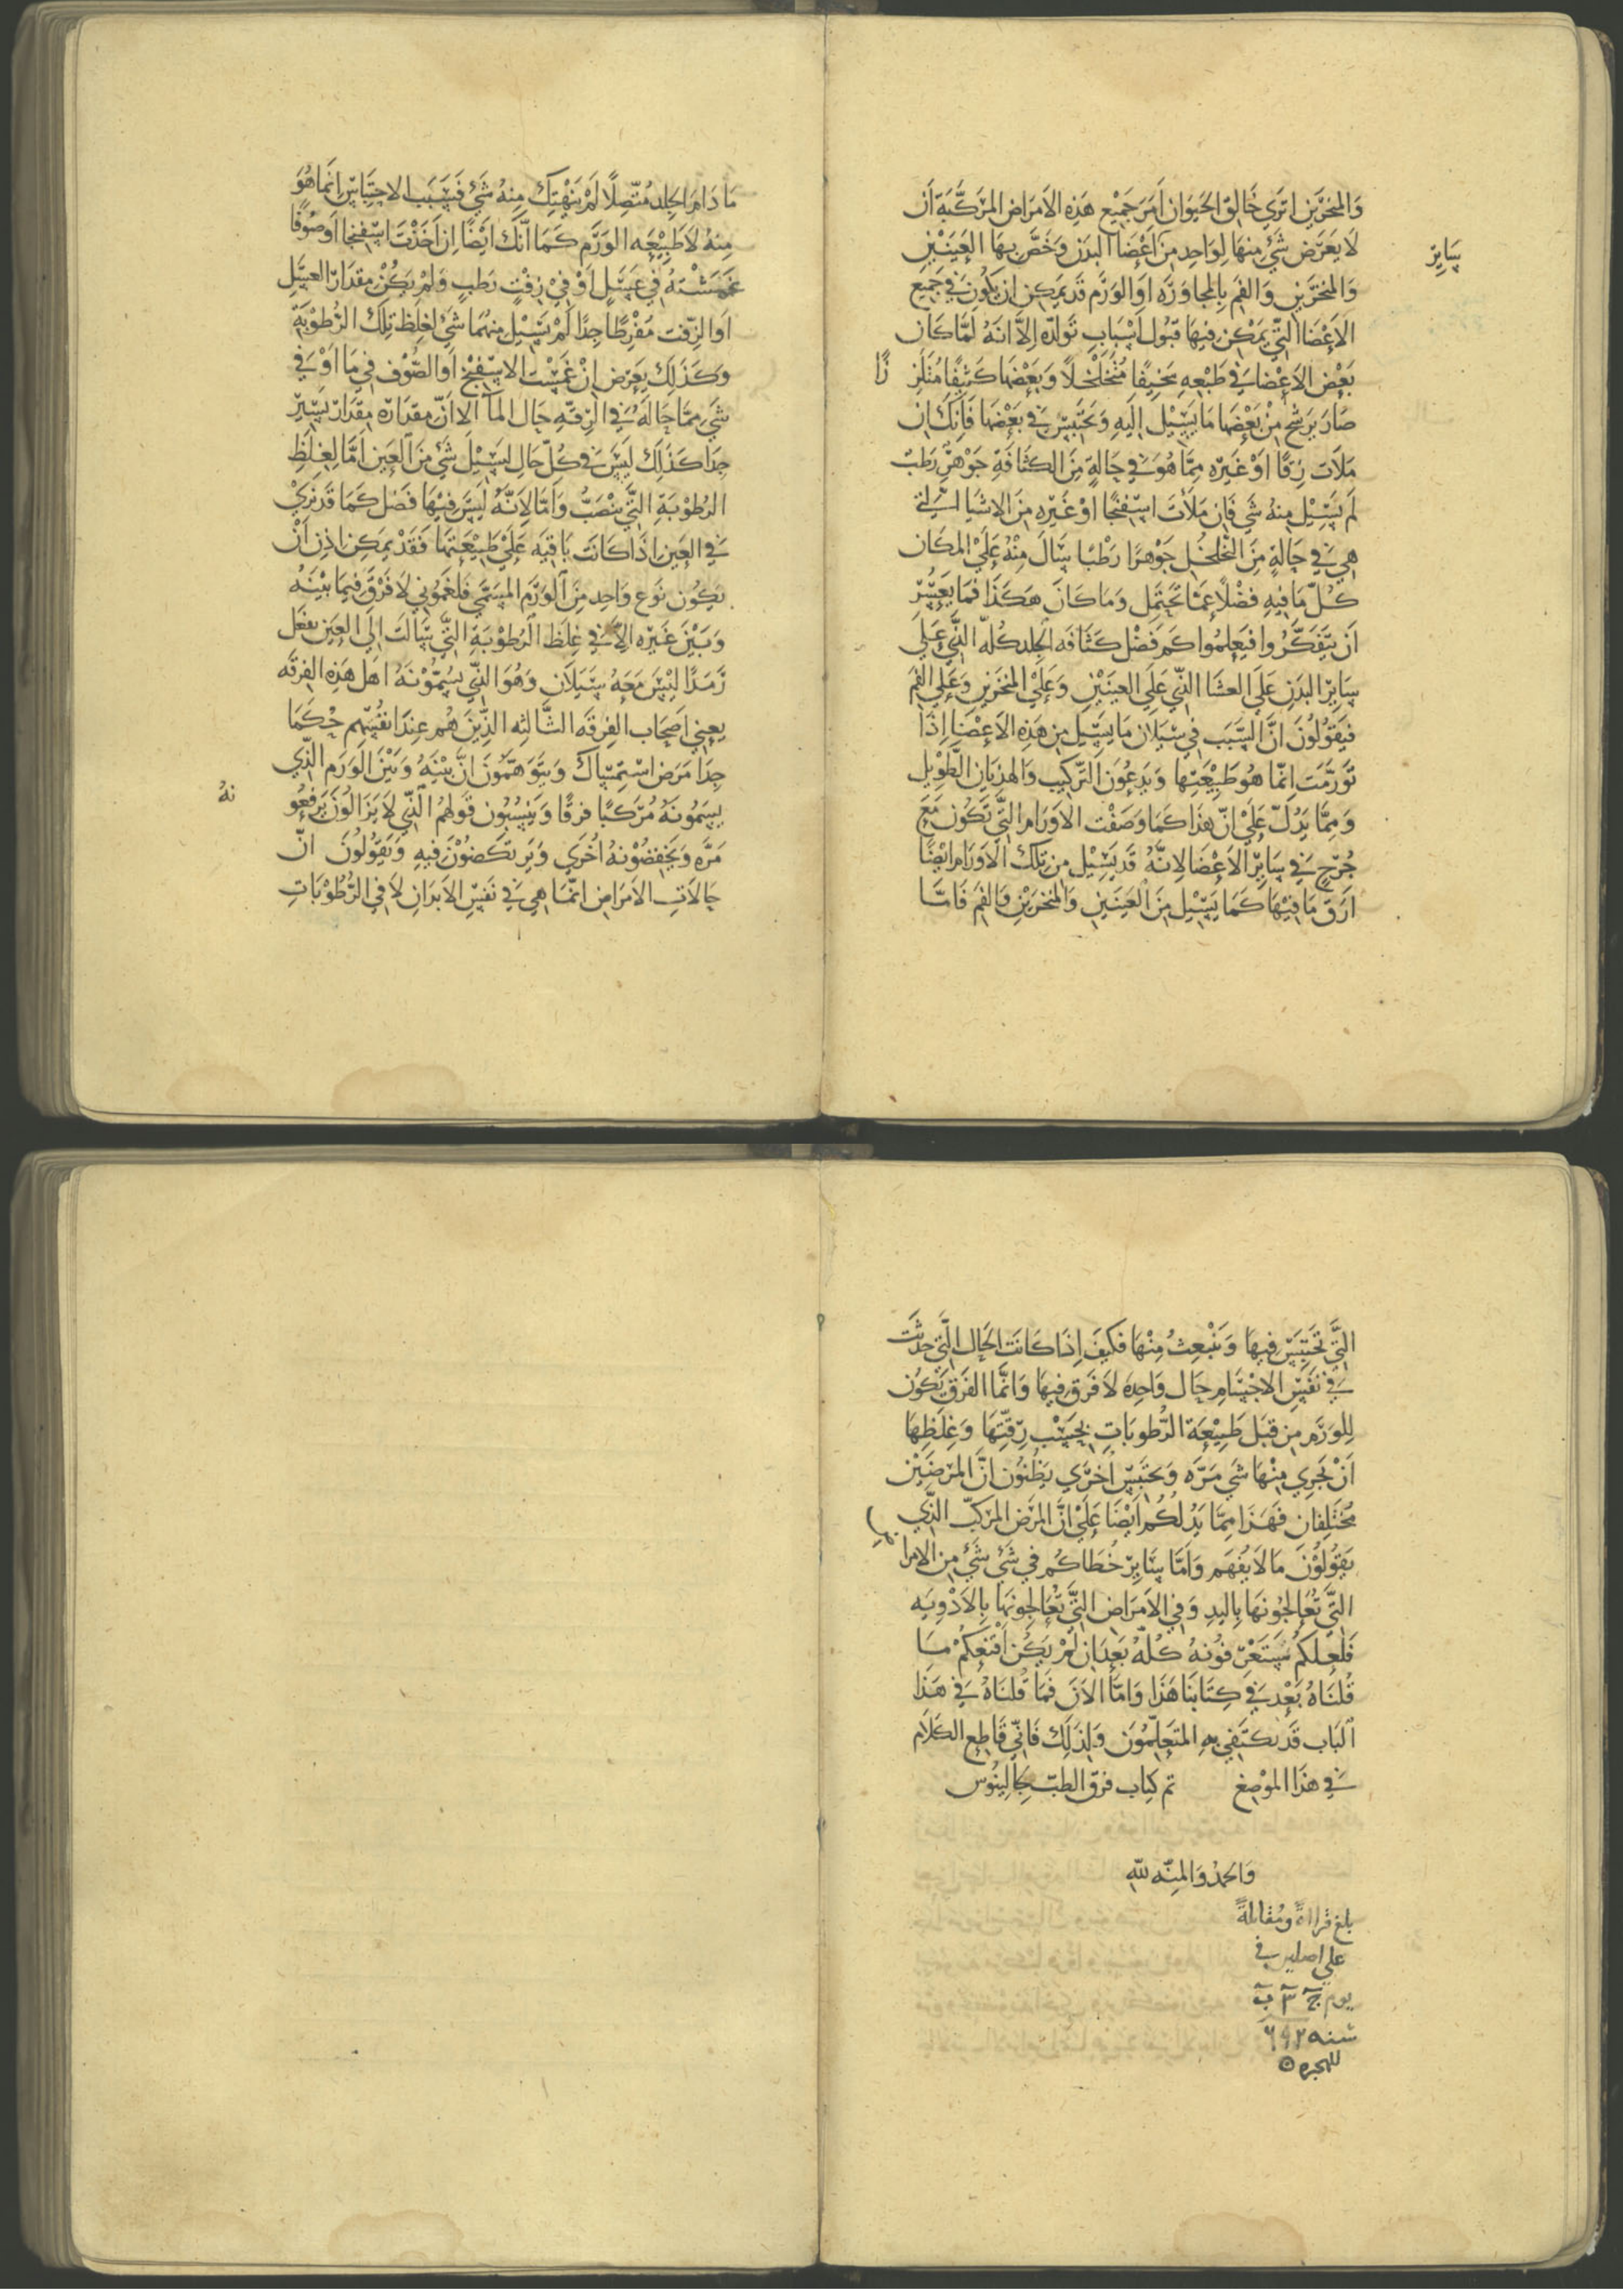 وَالمنخرَين اترَي خَالِق الحَيوَان اَمَرَ جَميْع هَذِه الاَمرَاض المرَكَّبَة اَن
لاَ يَعرَض شَيْ مِنهَا لِوَاحِدٍ مِنَ اَعْضَا البدَن وَخَصَّ بِهَا العَيْنَيْنِ
سَايِر
وَالمنخرَيْنِ وَالفَم بِالمجاوَرَه اوَالوَرَم قَد يمَكِن ان يَكُون فِي جَميع
الاَعْضَا التِّي يَمكِن فيهَا قبُول اَسْبَاب تَولّدِه اِلاَّ اَنهُ لمَّا كَان
بَعْض الاَعْضَا فِي طَبْعِهِ سَخِيفًا مُتَخَلخلاً وَبَعْضهَا كَثِيفًا مُتَلَزِ
زًا
صَارَ يَرشح مِنْ بَعْضهَا مَا يَسِيْل اِلَيهِ وَيَحْتَبِسُ فِي بَعْضهَا فَاِنكَ ان
مَلاَت زِقًا اَوْ غَيرَه مِمَّا هُوَ فِي حَالةٍ مِنَ الكثَافَةِ جَوْهَرً رَطبً
لَم يَسِيْل مِنهُ شَي فَاِن مَلاَت اسْفنجًا اوْ غَيْرِهِ مِنَ الاشيَا التِي
هِي فِي حَالَةٍ مِنَ التَّخَلخُل جَوْهرًا رَطْبًا سَالَ مِنْهُ عَلَيْ المكَان
كُلّ مَا فيهِ فضْلاً عَمَّا تَحْتَمِل وَمَا كَانَ هَكَذَا فَمَا يَعْسُر
اَن يَتَفَكَّرُوا فيَعلموُا كَم فَضْل كَثَافَه الجِلد كُلهّ الذّي عَلي
سَايِر البدَنِ عَلَي الغشَا الذّي عَلَي العَينَيْن وَعَلَيْ المنخَرَين وَعَلَي الفَمَ
فَيَقوُلوُنَ انَّ السَّبَب فِي سَيَلاَن مَا يَسِيْل مِن هَذِه الاَعْضَا اِذَا
تَورَّمَت اِنمَّا هُو طَبِيْعَتهَا وَيَدعُونَ التَّركيِب وَالهذيَان الطَّوِيْل
وَمِمَّا يَدُلّ عَلَيْ انّ هَذا كمَا وَصَفْت الاَورَام التِّي تَكُون مَعَ
جُرْحٍ فِي سَايِر الاَعْضَا لاِنَّهُ قَد يَسِيْل مِن تِلكَ الاَورَام ايْضًا
ارَقّ مَا فيْهَا كَمَا يَسِيْل مِنَ العَيْنَيْنِ وَالمنخرَيْنِ وَالفَم فَامَّا
مَا دَامَ الجِلد مُتّصِلاً لَمْ يَنْهتِكْ مِنهُ شَيْ فَسَبَب الاحتِبَاس اِنمَا هُوَ
مِنهُ لاَ طَبِيْعَه الوَرَم كَمَا انَّكَ ايْضًا اِن اَخَذْتَ اسْفِنجا اَو صُوفًا
غَمَسْتهُ فِي عَسَلٍ اَوْ فِي زِفْتٍ رَطبٍ وَلَمْ يَكُنْ مِقدَار العسَلِ
اوَ الزّفت مُفْرِطًا جِدًا لَمْ يَسِيْل مِنهُمَا شَيْ لِغلِظ تِلكَ الرُّطُوْبَةِ
وَكَذلِكَ يَعرَض انْ غَمَسْت الاسْفنج اَو الصُّوْف فِي مَا اَوْ فِي
شَي مِمَّا حَالهُ فِي الرّقّةِ حَال المآ الا انّ مِقدَارَه مِقدَارً يَسِيْر
جِدًا كَذلِكَ لَيْسَ فِي كُلّ حَالٍ يَسِيْلَ شَيْ مِنَ العَيْن اَمَّا لِغلَظِ
الرُطوْبَةِ التَّي تنْصَبُّ وَاَمَّا لاِنّهُ لَيْسَ فِيْهَا فَضْل كَمَا قَد نَرَيْ
فِي العَيْن اِذَا كَانَتَ بَاقيَه عَلَيْ طَبِيْعَتهَا فَقَدْ يمكِن اِذن اَنْ
يَكُون نَوع وَاحِد مِنَ الوَرَم المسَمَّي فلغموُني لاَ فَرْق فِيمَا بيْنَهُ
وَبَيْنَ غَيْرِه اِلاَّ فِي غلِظ الرُطُوْبَةِ التَّي سَالَتْ اِلَي العَيْن بفعل
رَمَدًا لَيْسَ مَعَهُ سَيَلاَن وَهُوَ الذّي يسُمّوْنَهُ اهَل هَذِهِ الفِرقَه
يعني اَصحَاب الفِرقَه الثَّالثِه الذِّيْنَ هُم عِندَ انفُسِهِم حُكَمَا
جِدًا مَرَض اسْتِمْسَاكَ وَيَتَوَهمّونَ انَّ بيْنَهُ وَبَيْنَ الوَرَم الذِّي
يسَمُونَهُ مُرَكبًا فرقًا وَيَنْسُبُون قَولهُم الذِّي لاَ يَزَالُونَ يَرفَعُو
نهُ
مَرَّه وَيَخفِضُوْنهُ اُخْرَي وَيَرتكضُوْن فِيهِ وَيَقُوْلُونَ انّ
حَالاَتِ الامَرَاض اِنمَّا هِي فِي نَفسِ الاَبدَانِ لاَ فِي الرُّطُوْبَاتِ
التَّي تَحتَبِسُ فِيهَا وَتَنْبعِثُ مِنْهَا فكيَفَ اِذَا كَانَت الحَال التِّي حَدَثَت
فِي نَفسِ الاجْسَام حَال وَاحِده لاَ فَرَق فِيهَا وَانَّمَا الفَرَق يَكُون
لِلوَرَم مِن قبَل طَبِيْعَة الرُّطوبَاتِ بِحَسْب رِقّتِهَا وَغلَظِهَا
اَنْ تجرِي مِنْهَا شَي مَرَّه وَيَحتَبِسُ اُخرَي يَظُنوُن انَّ المرَضَيْن
مُختَلِفَان فَهَذا مِمَّا يَدُلكُم ايَضًا عَلَيْ انَّ المرَض المركبّ الذِّي
يَقوُلوْنَ مَا لاَ يُفهَم وَاَمَّا سَايِر خُطَاكُم فِي شَيْ شَيْ مِن الامرا
ض
التَّي تُعَالجُونهَا بِاليَدِ وَفِي الاَمرَاض التَّي تُعَالجونهَا بِالاَدْوِيَه
فَلعَلكُم تَسْتَعْرِفوُنهُ كُلّهُ بَعدَ ان لَم يَكُن اَقنَعَكُمْ مَا
قُلنَاهُ بَعْد فِي كِتَابنَا هَذا وَامَّا الاَن فَمَا قُلنَاهُ فِي هَذَا
البَاب قَد يَكتَفِي بِهِ المتَعَلّمُونَ وَلِذلِكَ فَانِّي قَاطِع الكَلاَم
فِي هذا الموْضِع تم كتاب فرق الطبّ لجالِينُوس
وَالحمدُ وَالمنِّه لله
بلغ قراةً ومُقابلةً
علي اصلين في
يوم
سنه ٦٩٢
للهجره